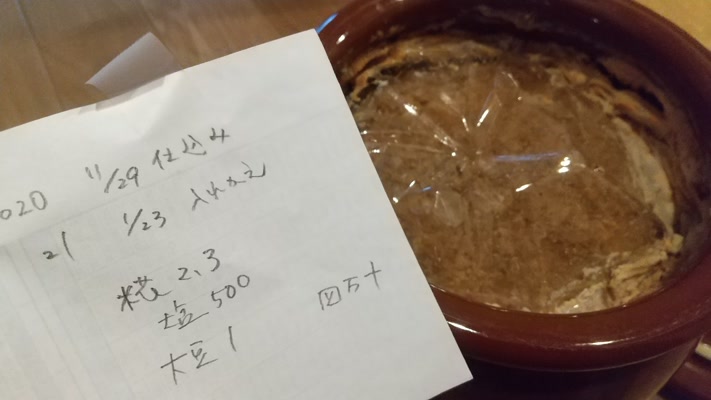 2020 11/29 仕込み
21 1/23 入れかえ
糀 2.3
塩 500
大豆 1
四万十